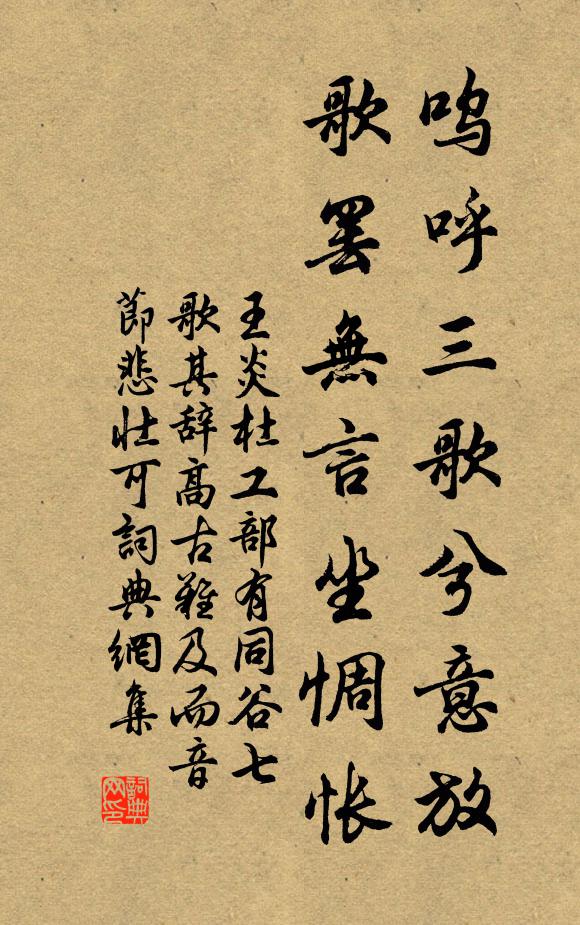 呜呼三歌兮意放
歌罢無言坐惆怅
王炎杜工部有同谷七
歌其辞高古難及而音
節悲壮可詞典網集
詞典网印